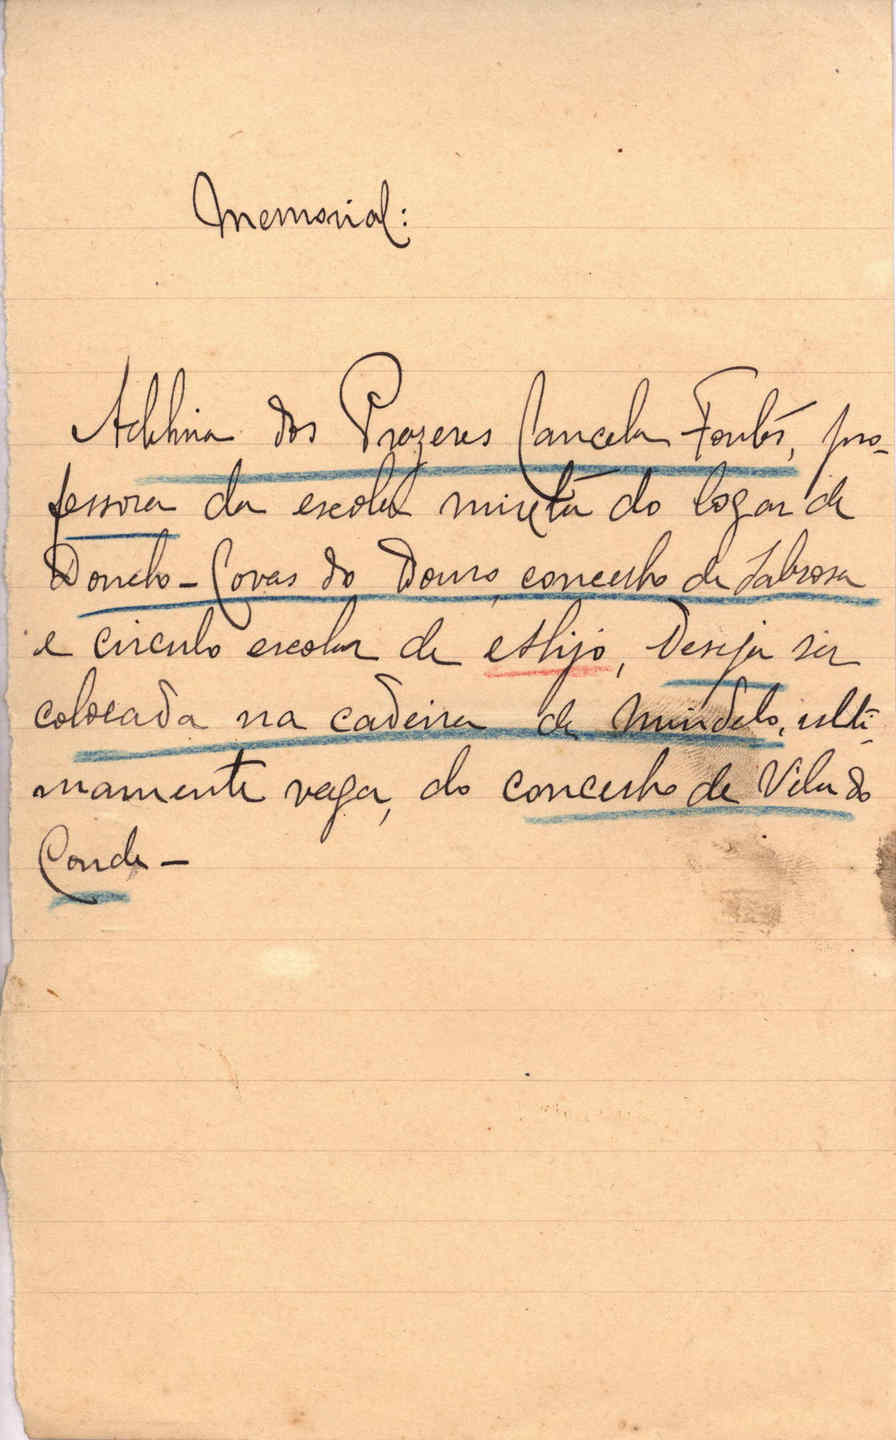 Memorial:
Adelina dos Prazeres Cancela Fontes, pro-
fessora da escola mixta do logar de
Donelo - Covas do Douro, concelho de Sabrosa
e circulo escolar de Alijó, deseja ser
colocada na cadeira de Mindelo, ulti-
mamente vaga, do concelho de Vila do
Conde -